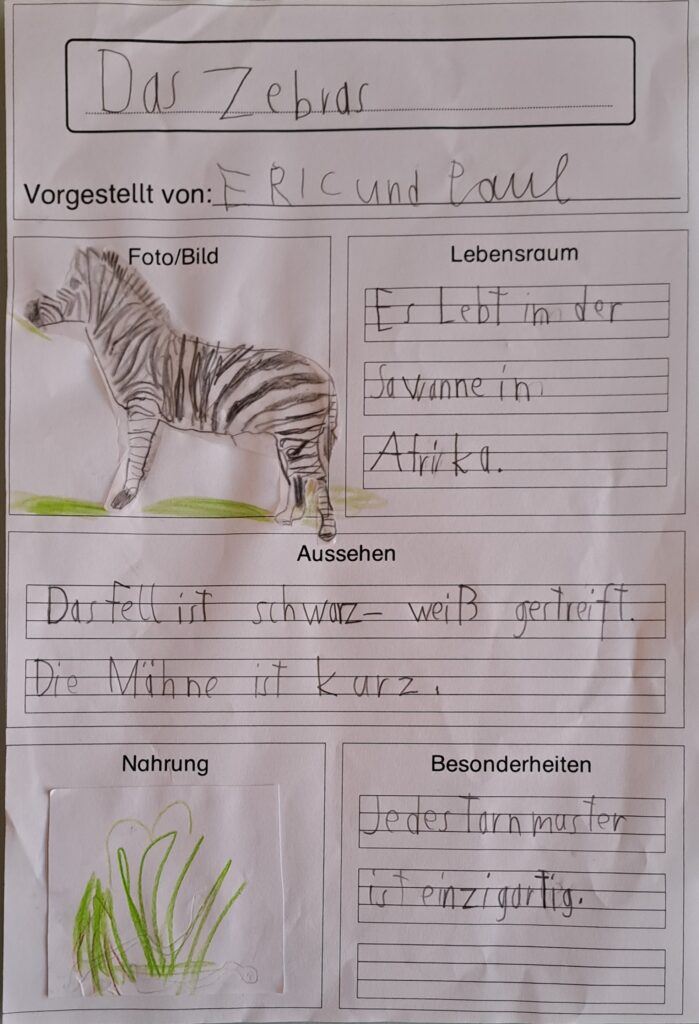 Das Zebras
Vorgestellt von: ERIC und Paul
Foto/Bild
Lebensraum
Es Lebt in der
Savanne in
Afrika.
Aussehen
Das Fell ist schwarz- weiß gestreift.
Die Mähne ist kurz.
Nahrung
Besonderheiten
Jedes tarnmuster
ist einzigartig.